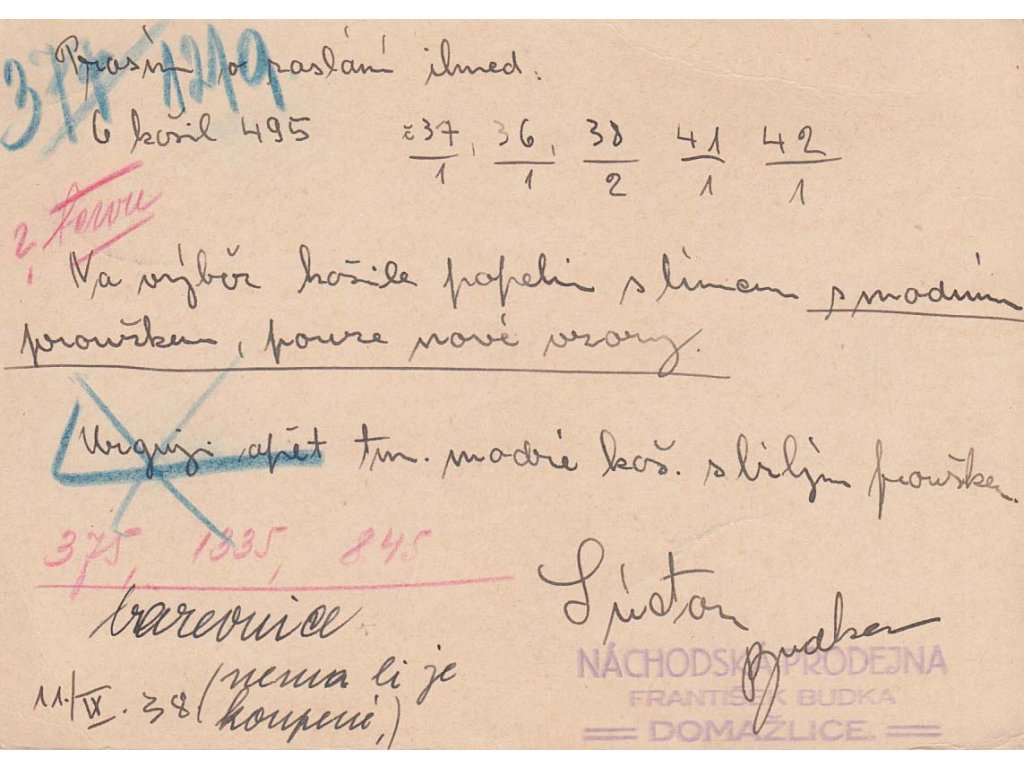 377 1219
Prosím o zaslání ihned.
6 košil 495 č 37/1, 36/1, 38/2 41/1 42/1
2,
Na výběr košile popelin s límcem s modním
proužkem, pouze nové vzory.
Urguji opět tm. modré koš. s bílým proužkem.
375, 1335, 845
S úctou
Budka
barevnice
(nemá li je
koupené,)
11./IX. 38
NÁCHODSKÁ PRODEJNA
FRANTIŠEK BUDKA
DOMAŽLICE.